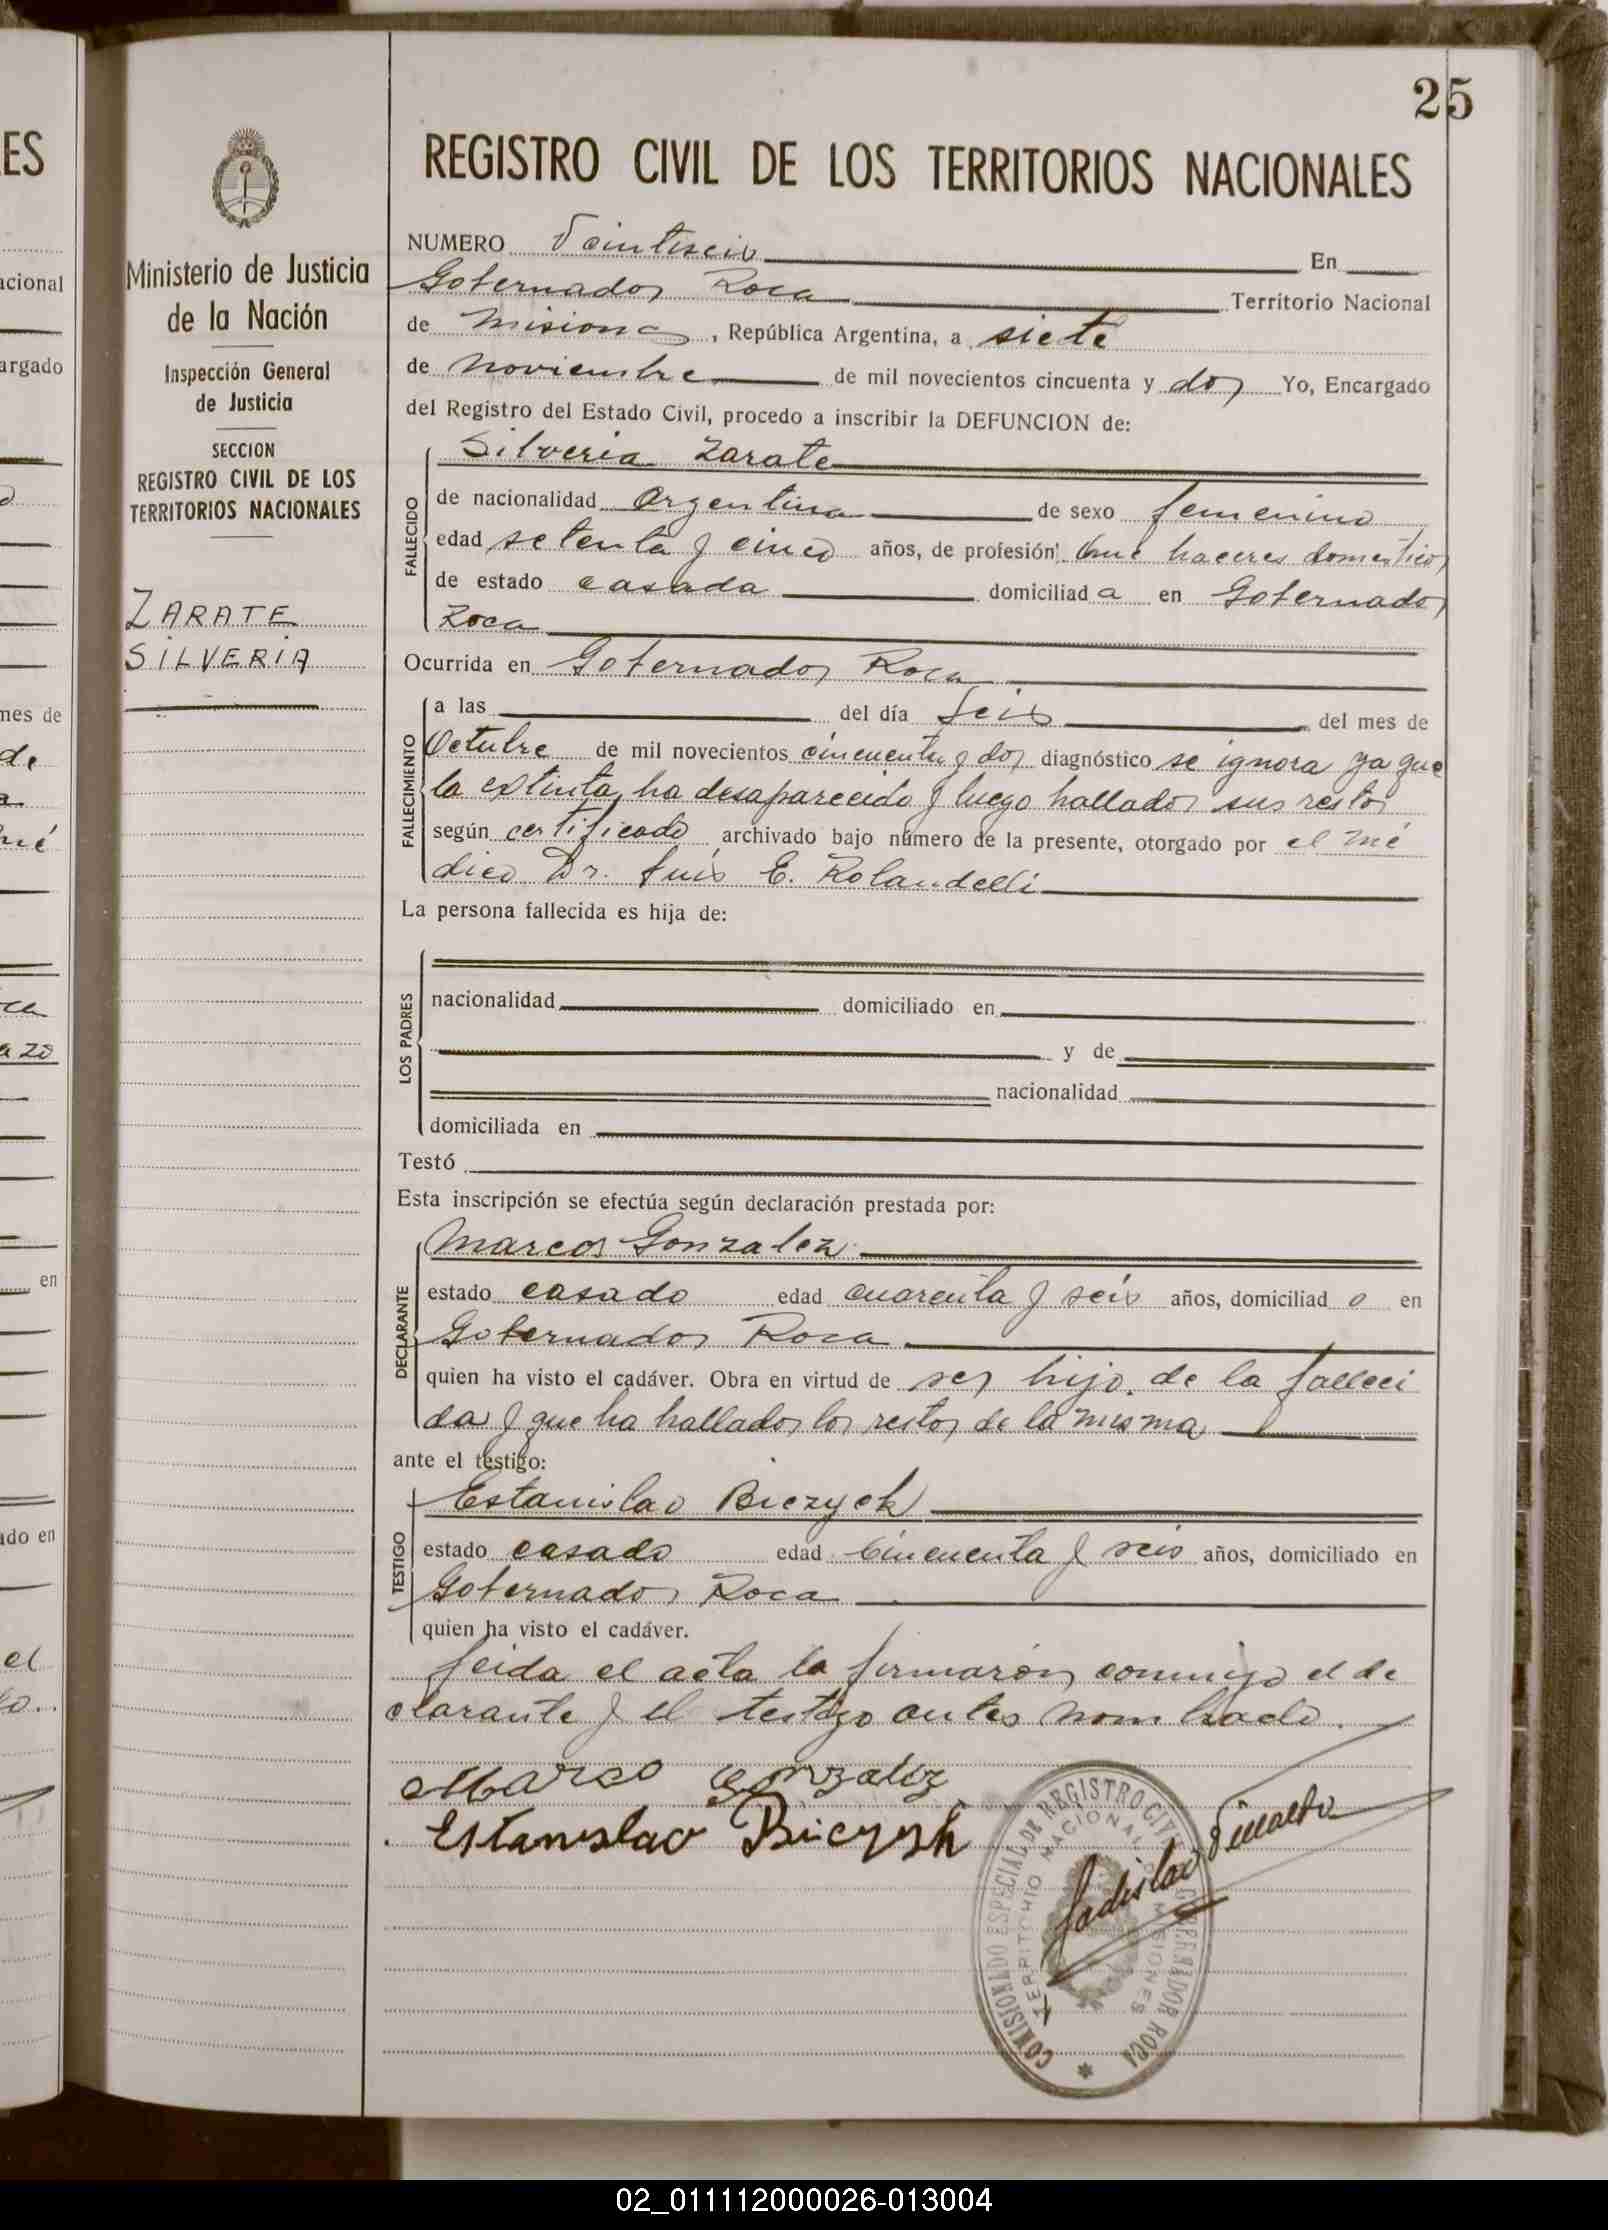 25
ES
Ministerio de Justicia
de la Nación
Inspección General
de Justicia
SECCION
REGISTRO CIVIL DE LOS
TERRITORIOS NACIONALES
ZARATE
SILVERIA
REGISTRO CIVIL DE LOS TERRITORIOS NACIONALES
NUMERO Veintiseis En
Gobernador Roca Territorio Nacional
de Misiones, República Argentina, a siete
de Noviembre de mil novecientos cincuenta y dos Yo, Encargado
del Registro del Estado Civil, procedo a inscribir la DEFUNCION de:
Silveria Zarate
FALLECIDO
de nacionalidad Argentina de sexo femenino
edad setenta y cinco años, de profesión haceres domesticos
de estado casada domiciliad a en Gobernador
Roca
Ocurrida en Gobernador Roca
FALLECIMIENTO
a las del día seis del mes de
Octubre de mil novecientos cincuenta y dos diagnóstico se ignora ya que
la extinta ha desaparecido y luego hallados sus restos
según certificado archivado bajo número de la presente, otorgado por el mé
dico Dr. Luis E. Rolandelli
La persona fallecida es hija de:
LOS PADRES
nacionalidad domiciliado en
y de
nacionalidad
domiciliada en
Testó
Esta inscripción se efectúa según declaración prestada por:
DECLARANTE
Marcos Gonzalez
estado casado edad cuarenta y seis años, domiciliad o en
Gobernador Roca
quien ha visto el cadáver. Obra en virtud de ser hijo de la falleci
da y que ha hallados los restos de la misma
ante el testigo:
TESTIGO
Estanislao Biczyck
estado casado edad Cincuenta y seis años, domiciliado en
Gobernador Roca
quien ha visto el cadáver.
Leida el acta la firmarón conmigo el de
clarante y el testigo antes nombrado.
Marco Gonzalez
Estanislao Biczysk
COMISIONADO ESPECIAL DE REGISTRO CIVIL GOBERNADOR ROCA
TERRITORIO NACIONAL DE MISIONES
Ladislao
02_011112000026-013004